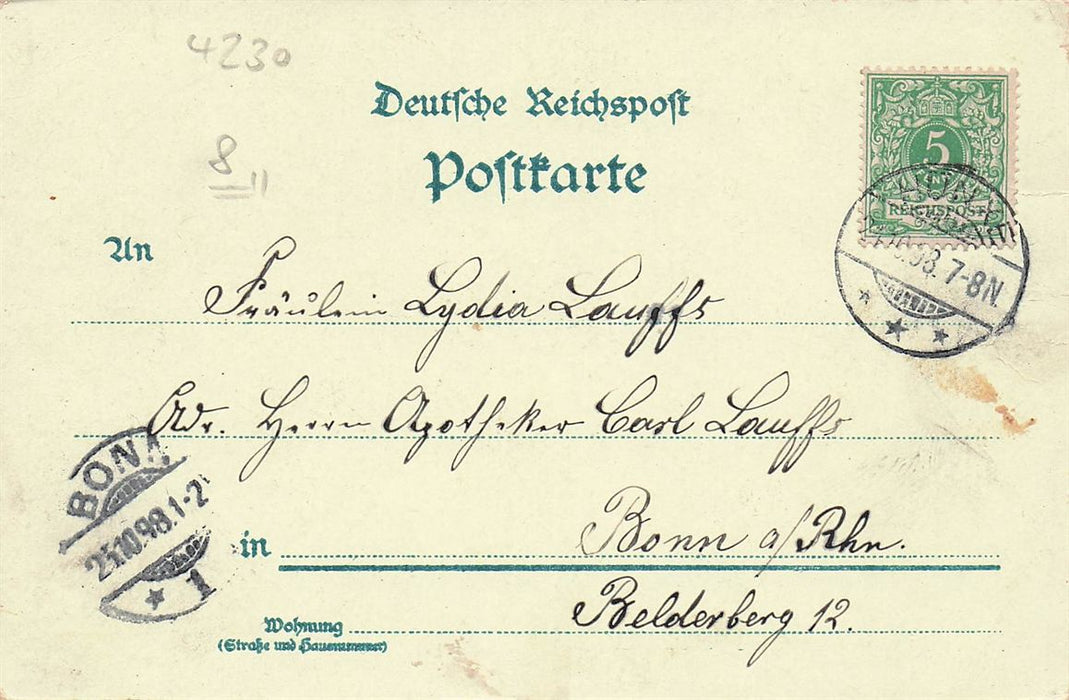 4230
8
11
Deutsche Reichspost
Postkarte
5
REICHSPOST
10.98. 7-8N.
An
Fräulein Lydia Lauffs
Adr. Herrn Apotheker Carl Lauffs
BONN
10.98.1-2
1
in Bonn a/Rhn.
Wohnung
(Straße und Hausnummer)
Belderberg 12.